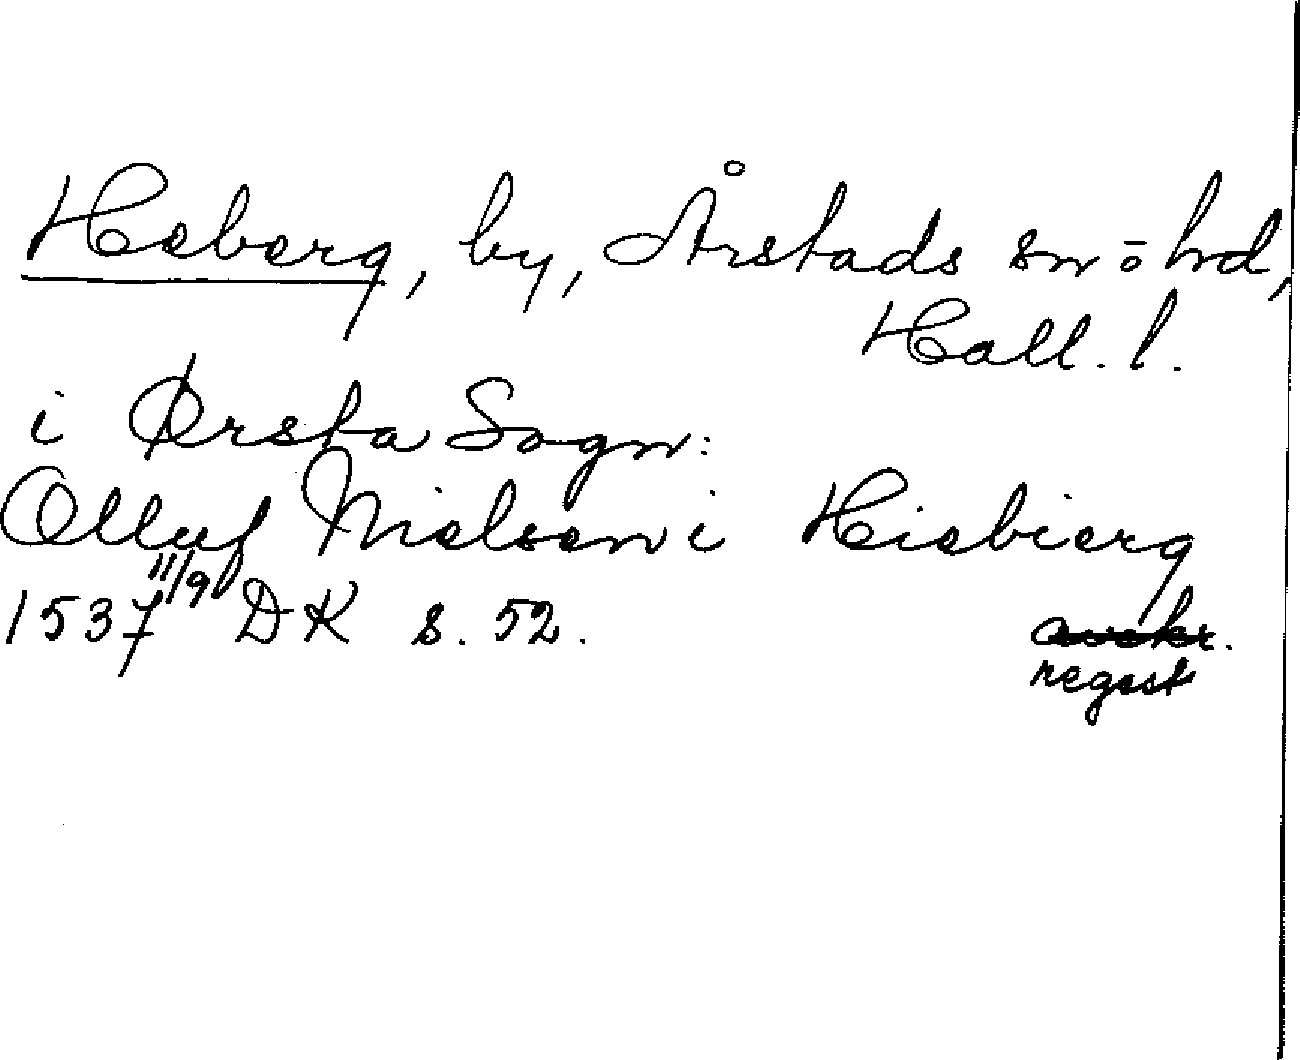 Heberg, by, Årstads sn o hd,
Hall. l.
i Ørsta Sogn:
Olluf Nielsen i Hiebierg
1537 11/9 DK s. 52.
avskr.
regest